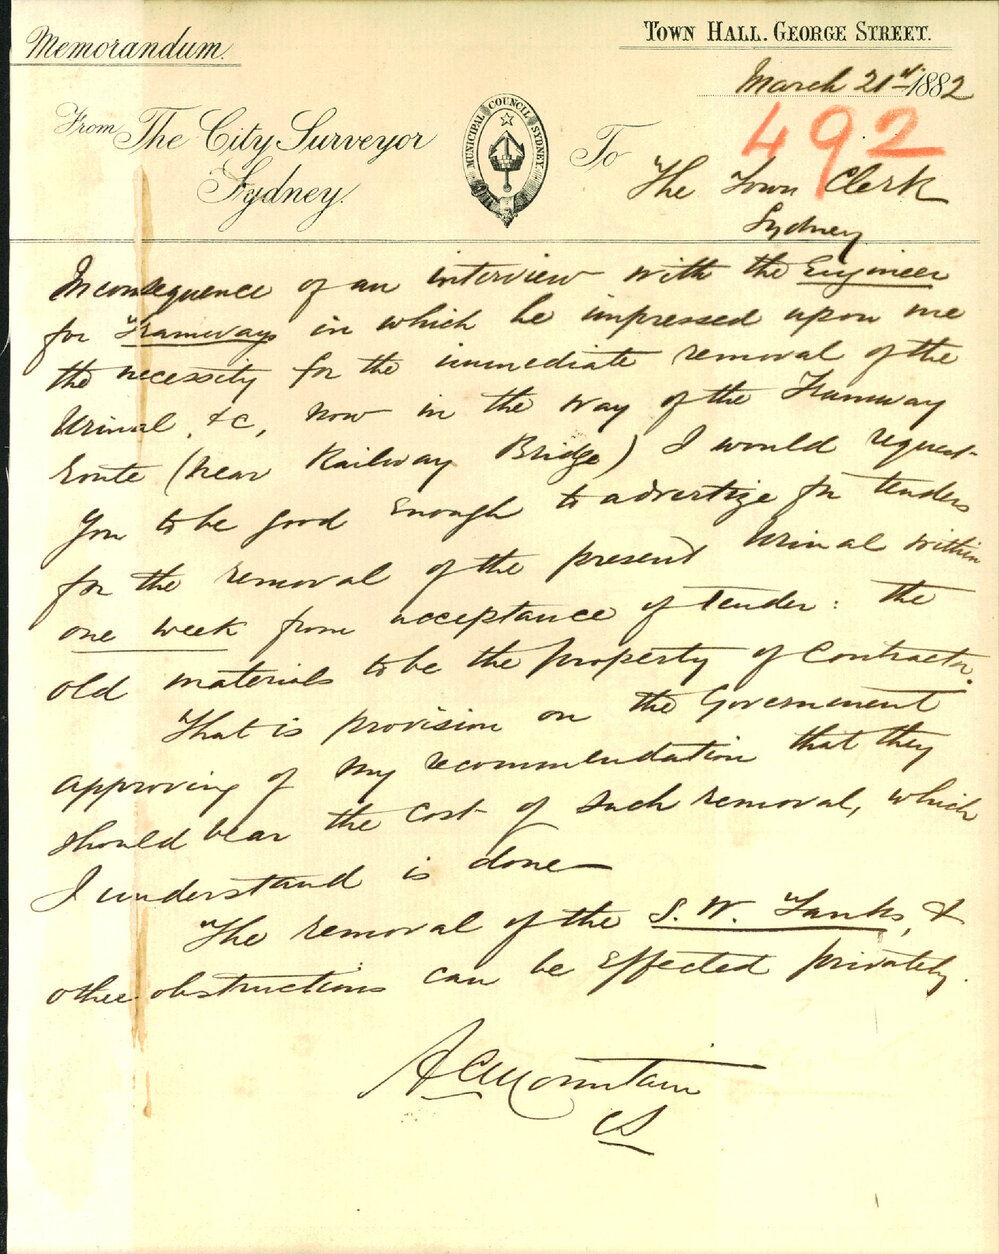 Memorandum.
TOWN HALL. GEORGE STREET.
March 21st 1882
492
From The City Surveyor
Sydney.
MUNICIPAL COUNCIL SYDNEY
To
The Town Clerk
Sydney
In consequence of an interview with the Engineer
for Tramways in which he impressed upon me
the necessity for the immediate removal of the
Urinal, &c, now in the way of the Tramway
Route (near Railway Bridge) I would request
you to be good enough to advertize for tenders
for the removal of the present Urinal within
one week from acceptance of tender: the
old materials to be the property of Contractor.
That is provision on the Government
approving of my recommendation that they
should bear the cost of such removal, which
I understand is done
The removal of the S. W. Tanks, &
other obstructions can be effected privately.
A C Mountain
CS